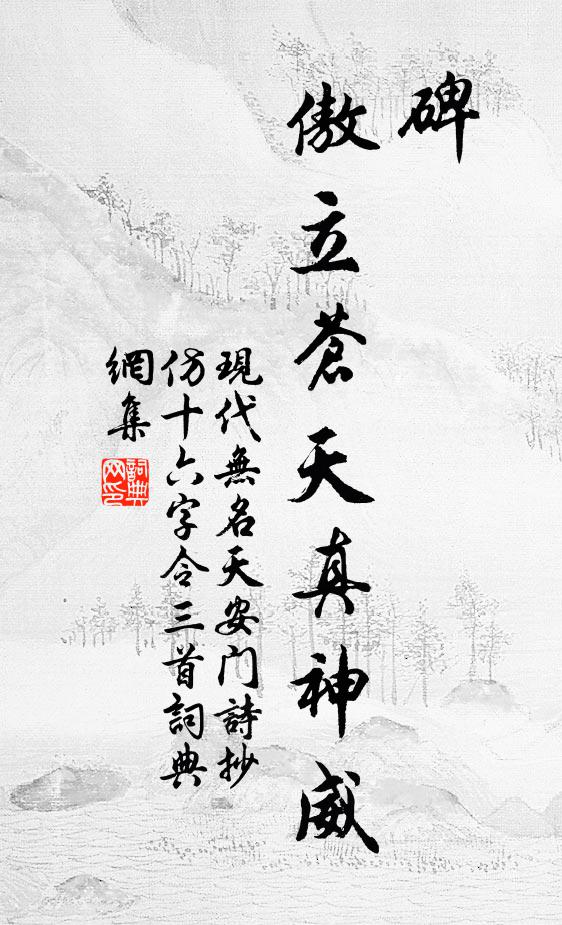 碑
傲立蒼天真神威
現代無名天安门詩抄
仿十六字令三首詞典
網集
詞典
网印